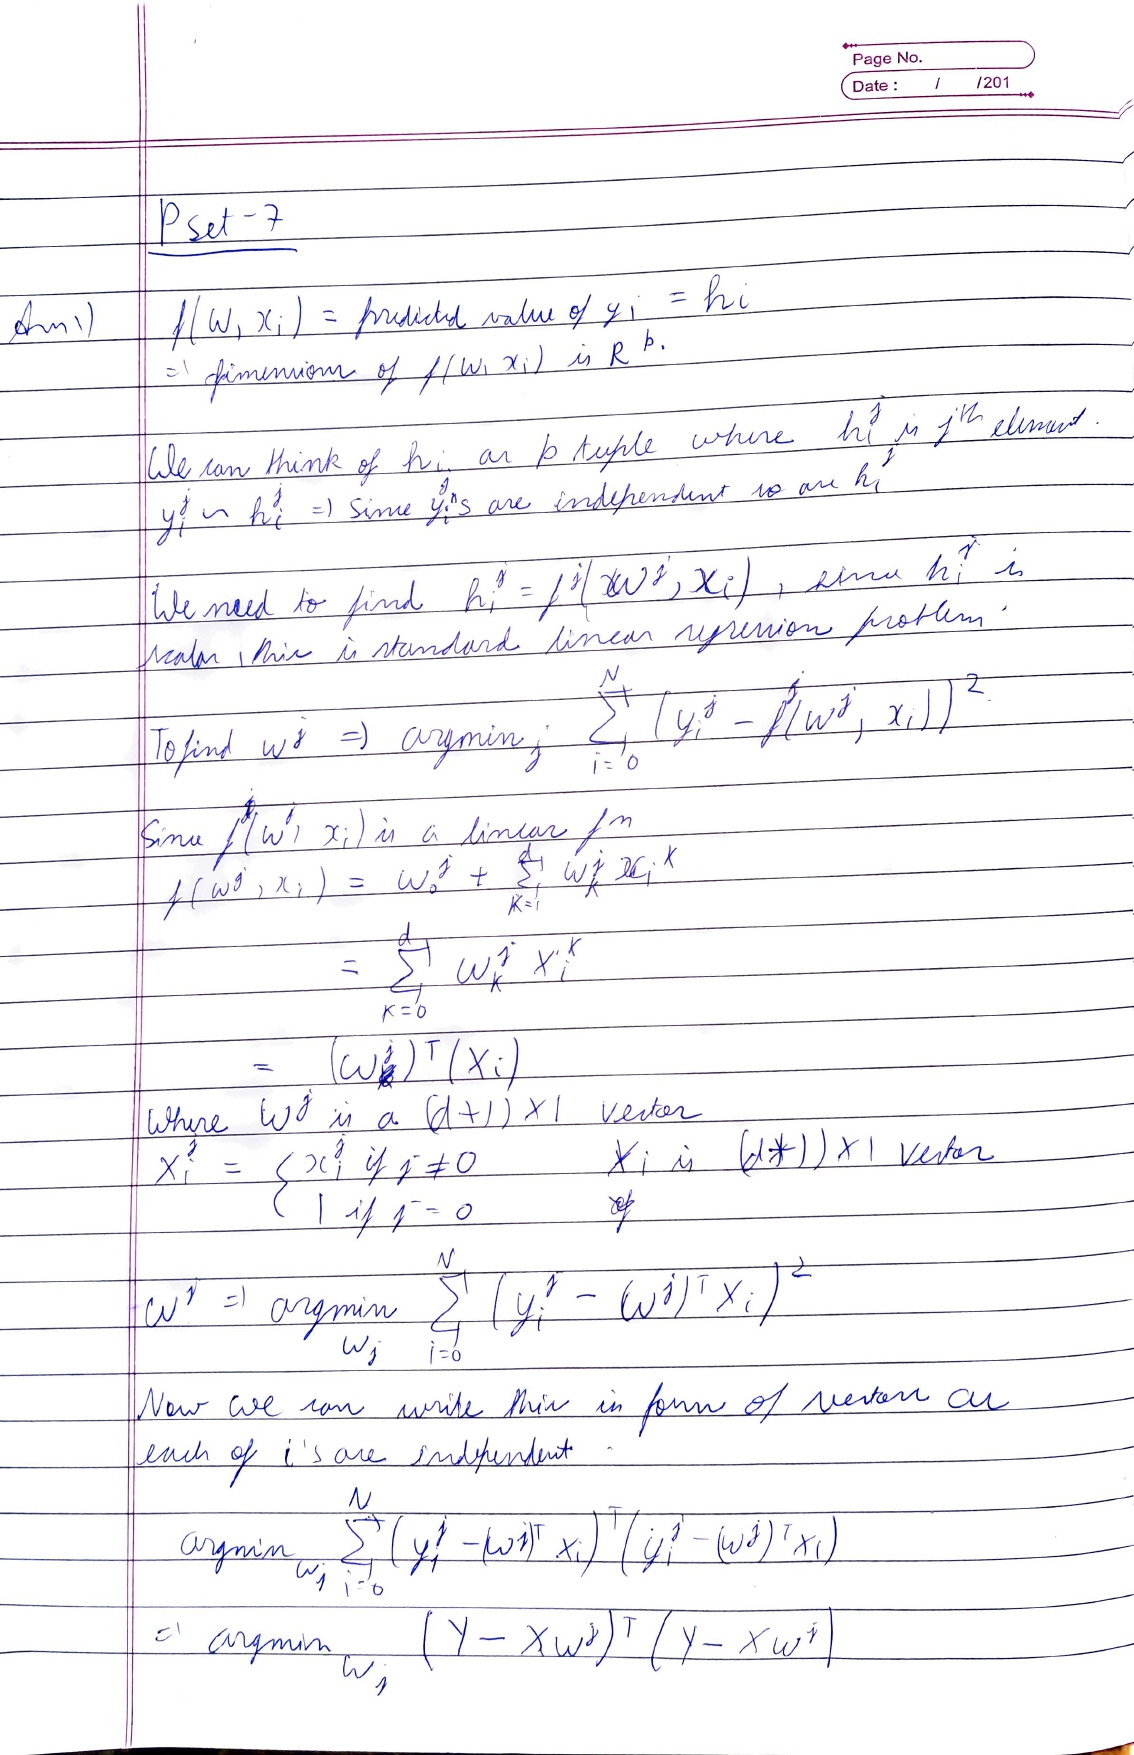 Page No.
Date : / /201
Pset-7
Ans 1) f(W, xi) = predicted value of yi = hi
=) Dimensions of f(W, xi) is R^p.
We can think of hi as p tuple where hi^j is j^th element.
yi^j ~ hi^j =) Since yi^j's are independent so are hi^j
We need to find hi^j = f^j(W^j, xi), since hi^j is
scalar, this is standard linear regression problem.
To find w^j =) argmin_j Σ_{i=0}^{N} (yi^j - f^j(w^j, xi))^2
Since f^j(w^j, xi) is a linear fn
f(w^j, xi) = w_0^j + Σ_{k=1}^{d} w_k^j xi^k
= Σ_{k=0}^{d} w_k^j Xi^k
= (w^j)^T (Xi)
Where w^j is a (d+1)×1 vector
Xi^j = { xi^j if j≠0 Xi is (d+1)×1 vector
1 if j=0
w^j =) argmin_{wj} Σ_{i=0}^{N} (yi^j - (w^j)^T Xi)^2
Now we can write this in form of vectors as
each of i's are independent.
argmin_{wj} Σ_{i=0}^{N} (yi^j - (w^j)^T xi)^T (yi^j - (w^j)^T xi)
=) argmin_{wj} (Y - Xw^j)^T (Y - Xw^j)